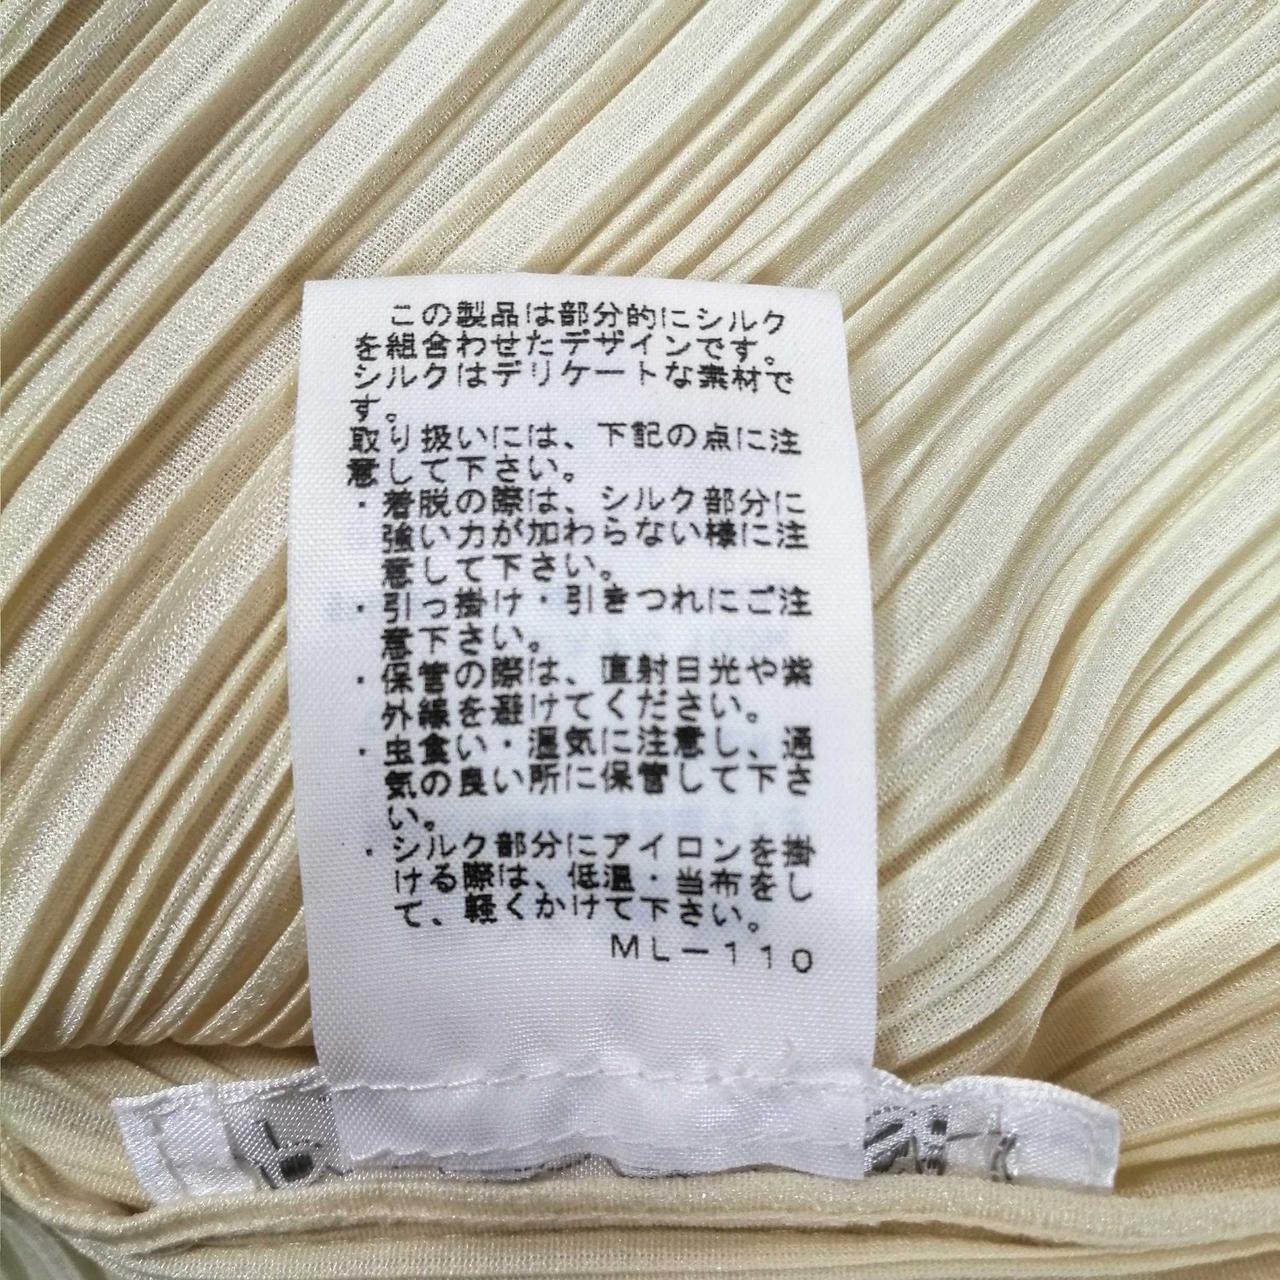 この製品は部分的にシルク
を組合わせたデザインです。
シルクはデリケートな素材で
す。
取り扱いには、下記の点に注
意して下さい。
・着脱の際は、シルク部分に
強い力が加わらない様に注
意して下さい。
・引っ掛け・引きつれにご注
意下さい。
・保管の際は、直射日光や紫
外線を避けてください。
・虫食い・湿気に注意し、通
気の良い所に保管して下さ
い。
・シルク部分にアイロンを掛
ける際は、低温・当布をし
て、軽くかけて下さい。
ML－110